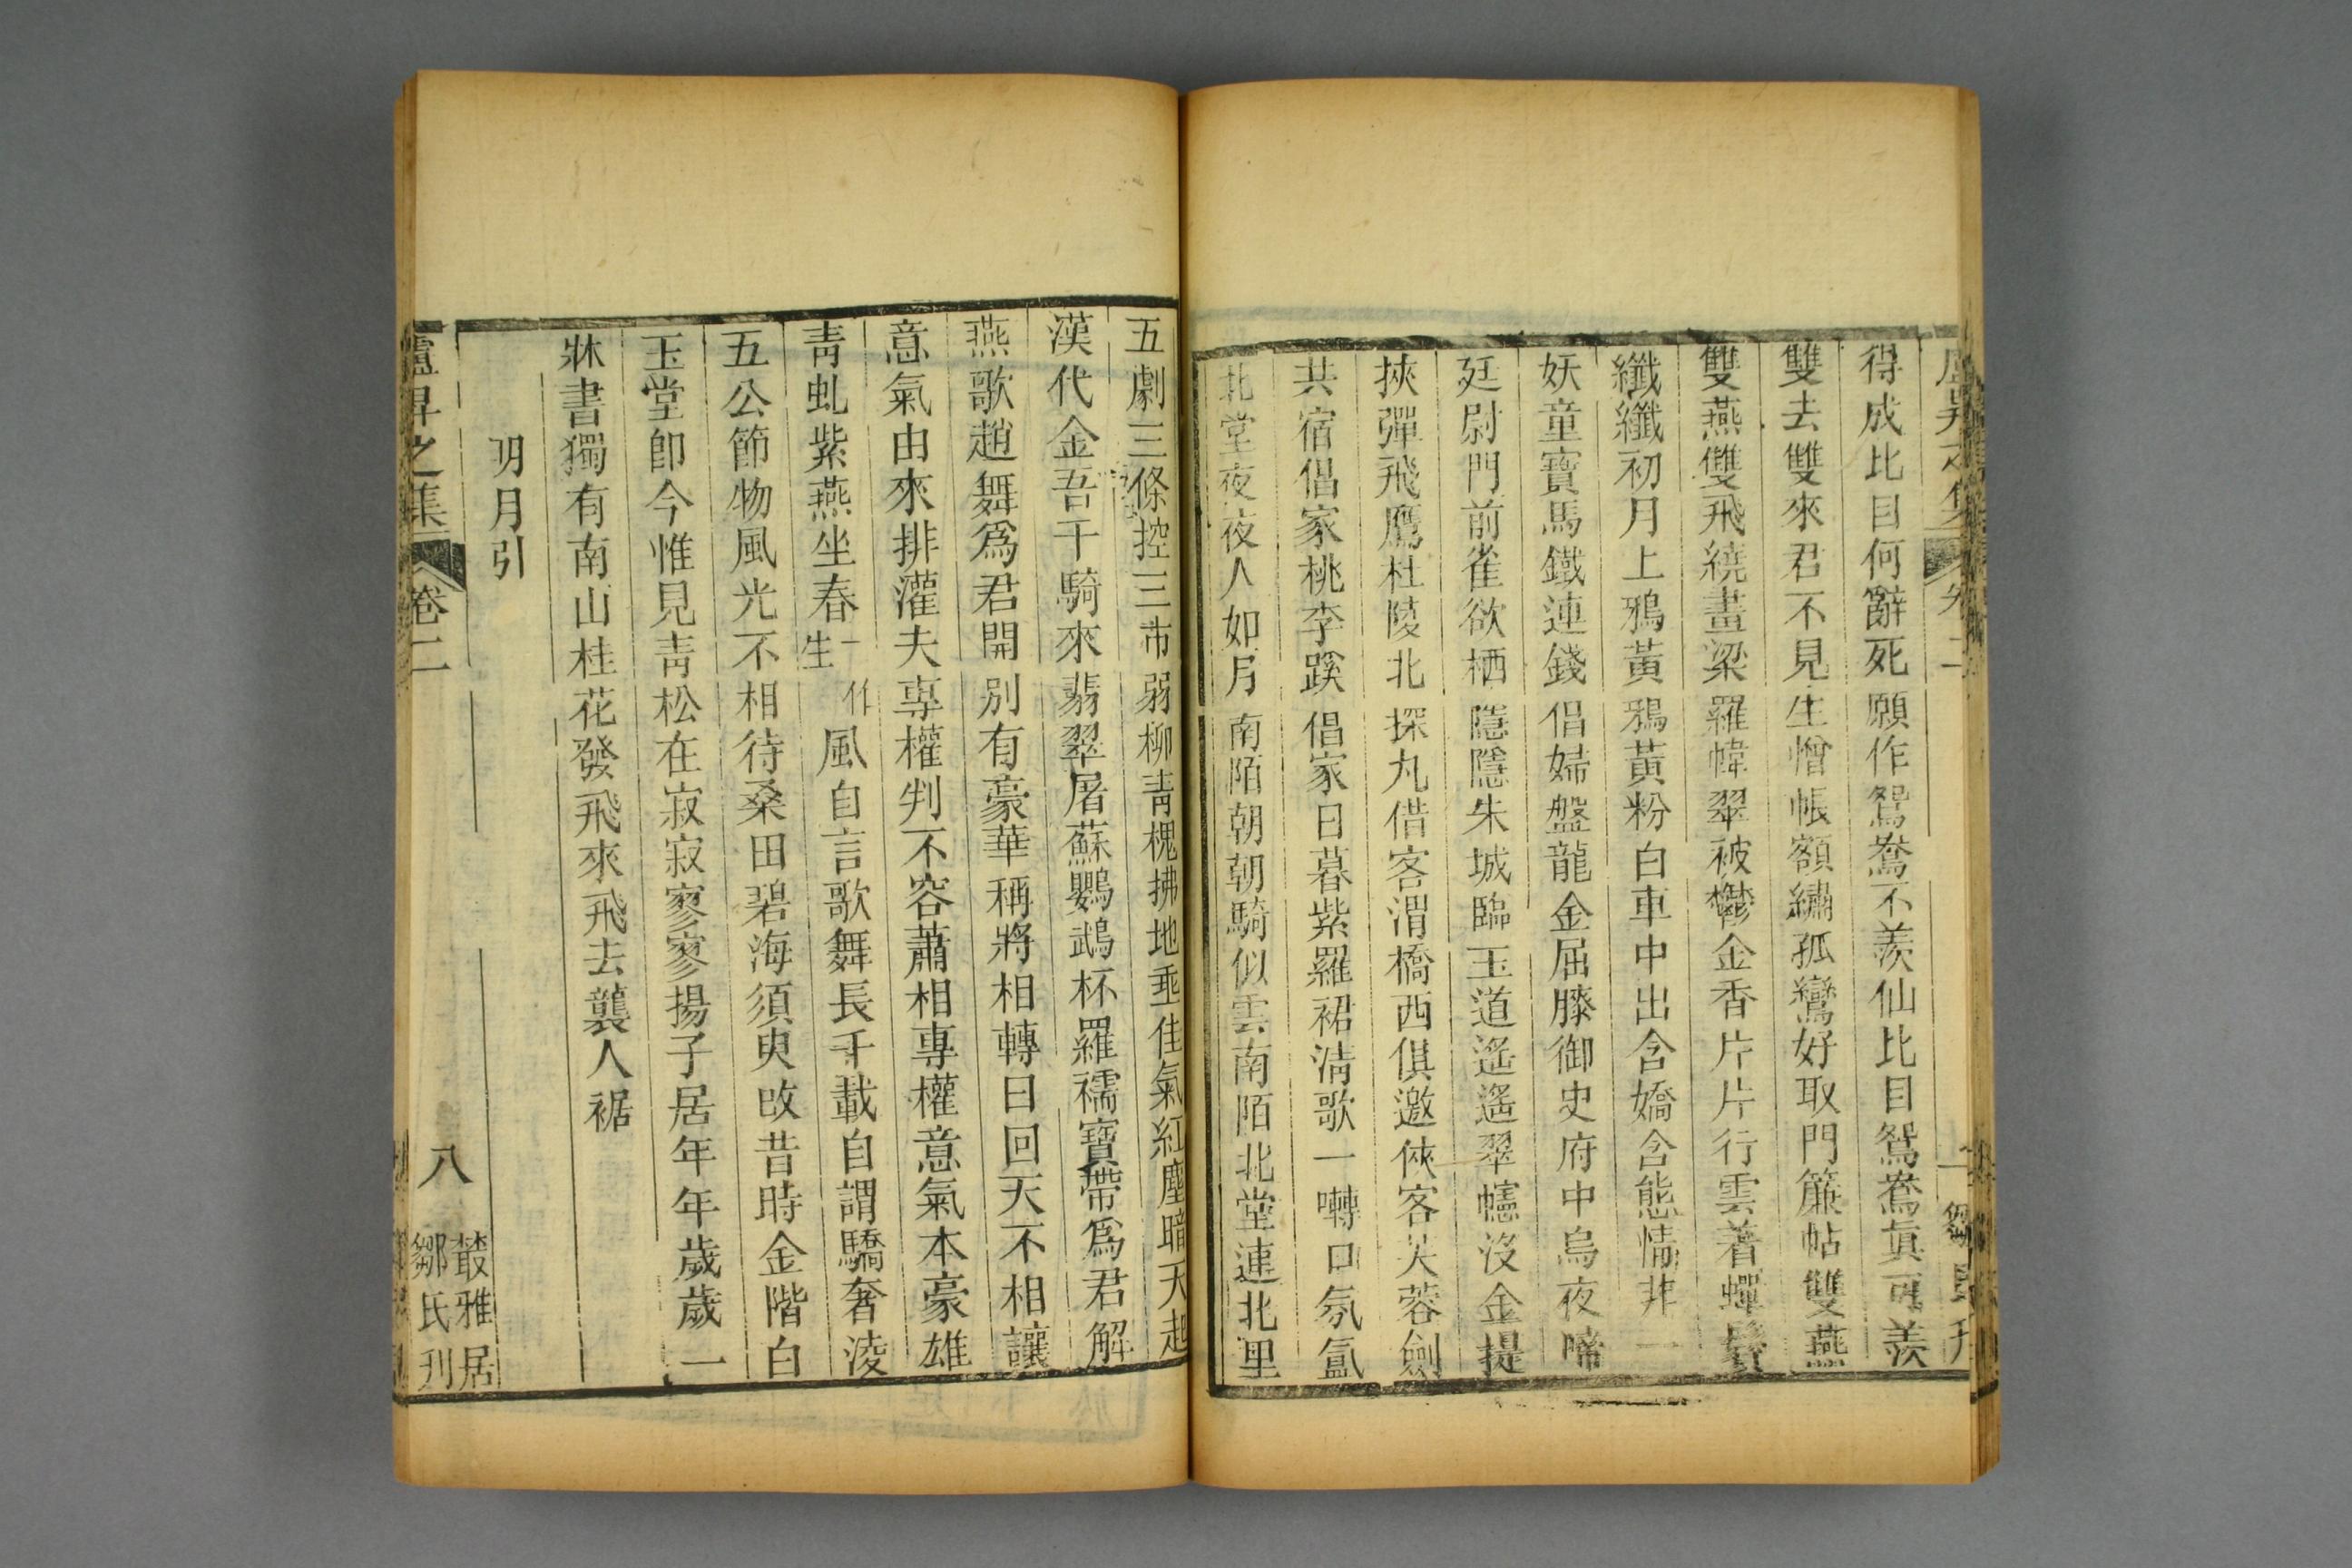 得成比目何辭死願作鴛鴦不羨仙比目鴛鴦眞可羨
雙去雙來君不見生憎帳額繡孤鸞好取門簾帖雙燕
雙燕雙飛繞畫梁羅幃翠被鬱金香片片行雲著蟬鬢
纖纖初月上鴉黃鴉黃粉白車中出含嬌含態情非一
妖童寶馬鐵連錢倡婦盤龍金屈膝御史府中烏夜啼
廷尉門前雀欲栖隱隱朱城臨玉道遙遙翠幰沒金提
挾彈飛鷹杜陵北探丸借客渭橋西俱邀俠客芙蓉劍
共宿倡家桃李蹊倡家日暮紫羅裙淸歌一囀口氛氳
北堂夜夜人如月南陌朝朝騎似雲南陌北堂連北里
五劇三條控三市弱柳靑槐拂地垂佳氣紅塵暗天起
漢代金吾千騎來翡翠屠蘇鸚鵡杯羅襦寶帶爲君解
燕歌趙舞爲君開別有豪華稱將相轉日回天不相讓
意氣由來排灌夫專權判不容蕭相專權意氣本豪雄
靑虬紫燕坐春一作生風自言歌舞長千載自謂驕奢淩
五公節物風光不相待桑田碧海須臾改昔時金階白
玉堂卽今惟見靑松在寂寂寥寥揚子居年年歲歲一
牀書獨有南山桂花發飛來飛去襲人裾
明月引
盧昇之集 卷二 八 叢雅居鄒氏刊